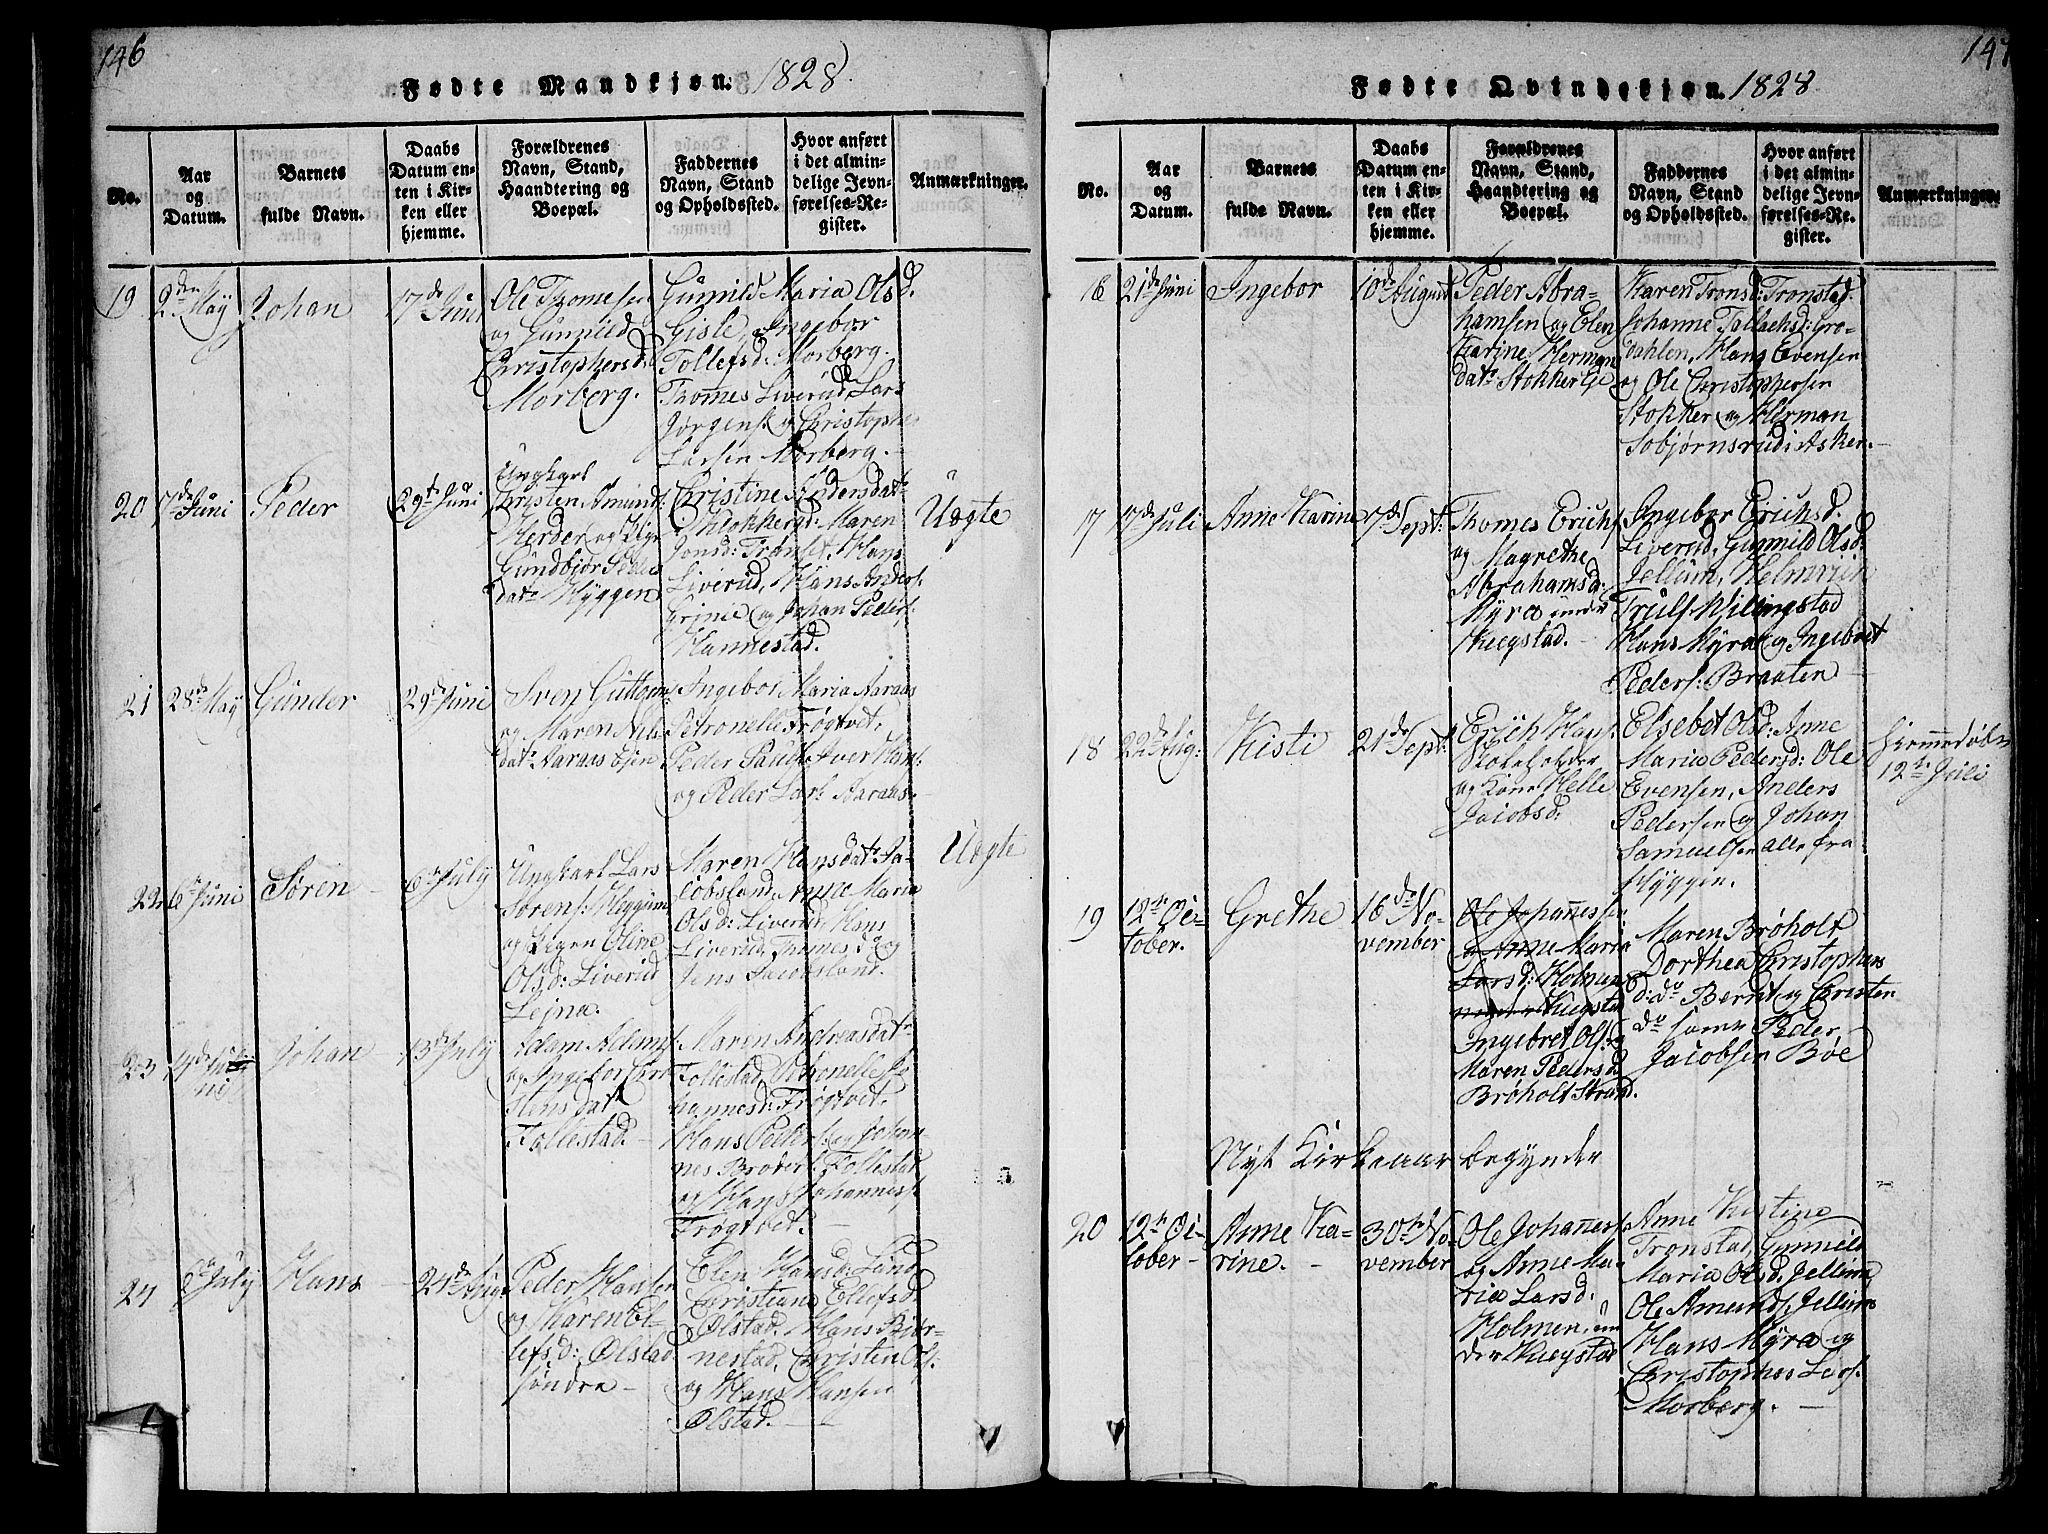 146
Fødte Mandkjøn. 1828.
No.
Aar
og
Datum.
Barnets
fulde Navn.
Daabs
Datum en-
ten i Kir-
ken eller
hjemme.
Forældrenes
Navn, Stand,
Haandtering og
Boepæl.
Faddernes
Navn, Stand
og Opholdssted.
Hvor anført
i det almin-
delige Jevn-
førelses-Re-
gister.
Anmærkninger.
19
2den May
Johan
17de Juni
Ole Thomesen
og Gunnild
Christophersd.
Morberg.
Gunnild Maria Olsd.
Gisle, Ingebor
Tollefsd: Morberg.
Thomes Liverud, Lars
Jørgens. og Christopher
Larsen Morberg.
20
7de Juni
Peder
29de Juni
Ungkarl
Christen Amunds:
Herder og Pige
Gundbjør Peders
datr Hyggen
Christine Andersdatr
Klokkerud: Maren
Jonsd: Trønset, Hans
Liverud, Hans Anders.
Grine og Johan Peders.
Hannestad.
Uægte
21
28de May
Gunder
29de Juni
Sven Guttorms:
og Maren Nils
datr Aaraas Ejer
Ingebor Maria Aaraas
Petronelle Frøgtvet.
Peder Pauls. Iver Hans.
og Peder Lars. Aaraas.
22
6te Juni
Søren
6te July
Ungkarl Lars
Sørens: Heggum
og Pigen Oline
Olsd: Liverud
Lejna.
Maren Hansdatr Ja-
cobsland, Anne Maria
Olsd: Liverud, Hans
Liverud, Thomes do og
Jens Jacobsland.
Uægte
23
19de Ju-
ni
Johan
13de July
Adam Adams.
og Ingebor Chri-
stensdatr
Follestad.
Maren Andreasdatr
Follestad, Petronelle Jo-
hannesd: Frøgtvet.
Hans Peders: og Johan-
nes Broders: Follestad
og Hans Johanness.
Frøgtvet.
24
July
Hans
24de Aug:
Peder Hansen
og Karen El-
lefsd: Ølstad
søndre
Elen Hansd: Lind
Christiane Ellefsd
Ølstad. Hans Bjør-
nestad, Christen Ols.
og Hans Hansen
Ølstad.
147
Fødte Qvindekjøn. 1828
No.
Aar
og
Datum.
Barnets
fulde Navn.
Daabs
Datum en-
ten i Kir-
ken eller
hjemme.
Forældrenes
Navn, Stand,
Haandtering og
Boepæl.
Faddernes
Navn, Stand
og Opholdssted.
Hvor anført
i det almin-
delige Jevn-
førelses-Re-
gister.
Anmærkninger.
16
21de Juni
Ingebor
10de August
Peder Abra-
hamsen og Elen
Karine Herman
datr Stokker Eje
Karen Tronsd: Tronstad.
Johanne Tollachsd: Gro-
dahlen, Hans Evensen
og Ole Christophersen
Stokker og Herman
Sobjørnsrud i Asker.
17
17de Juli
Anne Karine
7de Sept:
Thomes Erichs.
og Magrethe
Abrahamsd:
Myra under
Kuegstad.
Ingebor Erichsd.
Liverud, Gunnild Olsd.
Jellum, Helmrich
Truls. Willingstad
Hans Myra og Ingebret
Peders: Braaten
18
22de Aug:
Kisti
21de Sept:
Erich Hans.
og Kone Helle
Jacobsd.
Elsebet Olsd: Anne
Maria Pedersd: Ole
Evensen, Anders
Pedersen og Johan
Samuelsen alle fra
Hyggen.
hjemmedøbt
12te Juli
19
12te Oc-
tober.
Grethe
16de No-
vember
Ole Johannessen
og Anne Maria
Larsd: Holmen
under Kuegstad
Ingebret Ols. og
Maren Pedersd
Brøholt Strand.
Maren Brøholt
Dorthea Christophers
d: do Bernt og Christen
do samt Peder
Jacobsen Bøe
Nyt Kirkeaar begynder
20
12te Oc-
tober
Anne Ka-
rine.
30te No-
vember
Ole Johannes.
og Anne Ma-
ria Larsd.
Holmen, un-
der Kuegstad
Anne Kistine
Tronstad, Gunnild
Maria Olsd. Jellum,
Ole Amunds. Jellum
Hans Myra og
Christopher Lars.
Morberg.